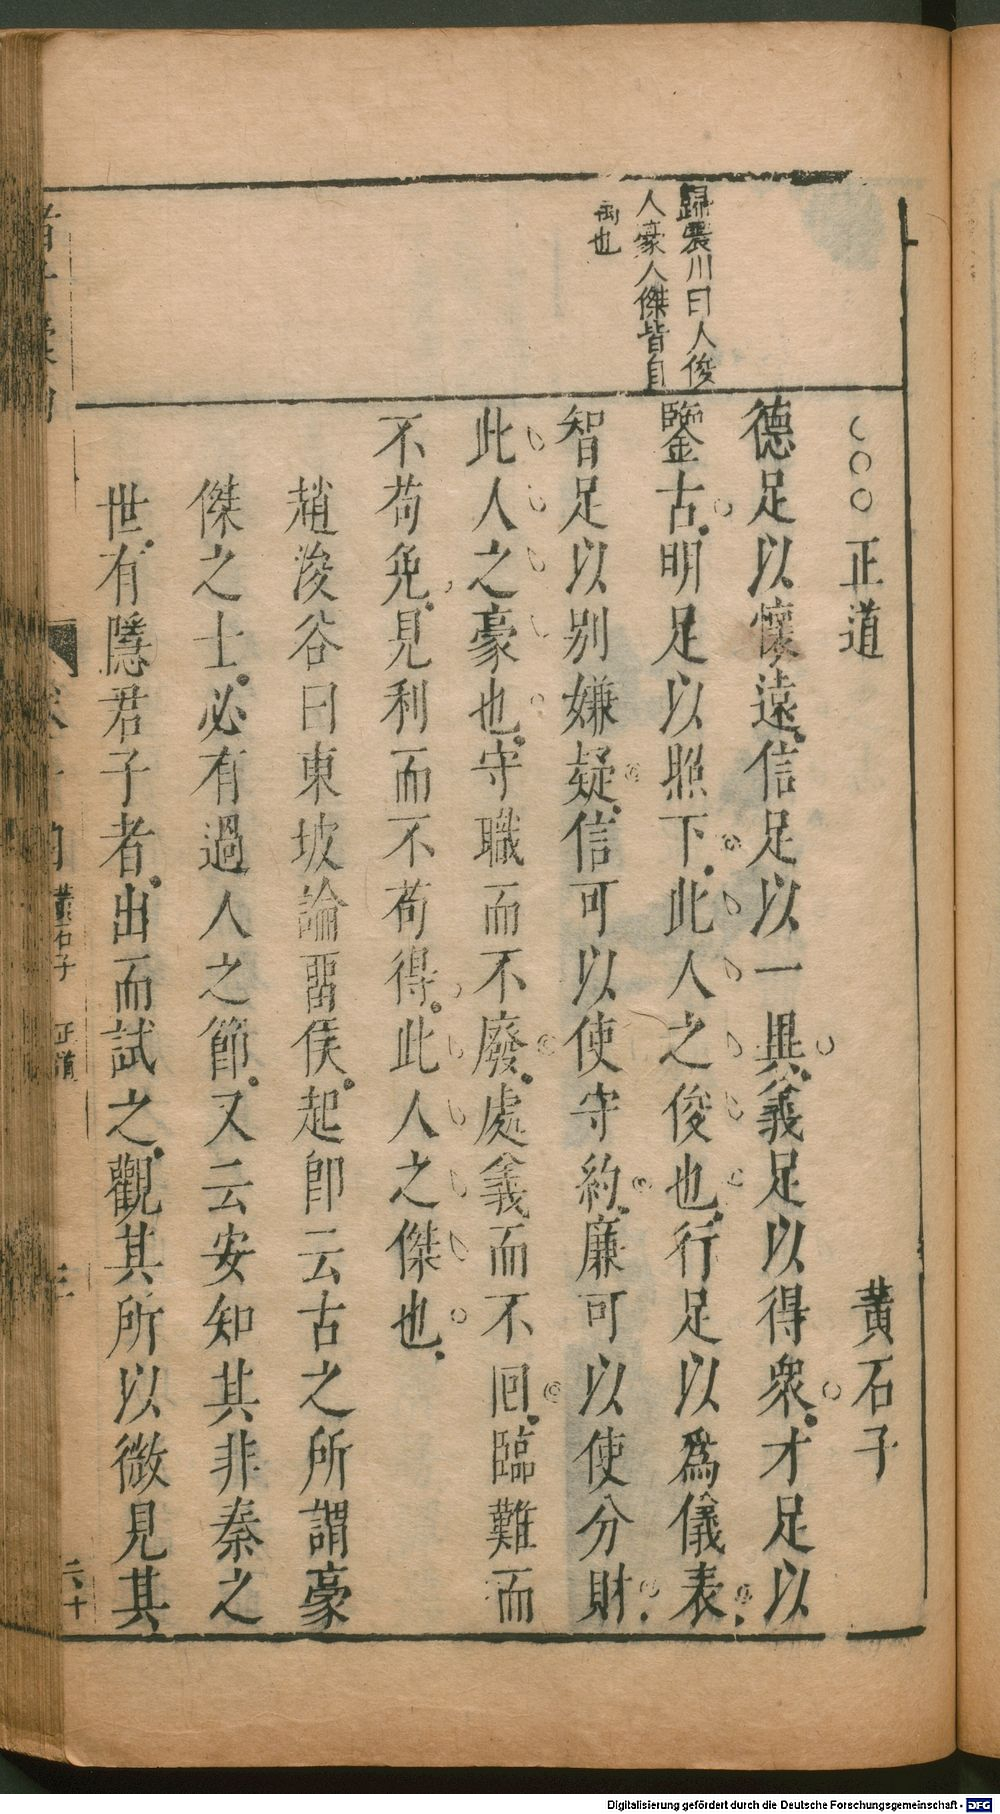 歸震川曰人俊
人豪人傑皆自
寓也
正道 黃石子
德足以懷遠信足以一異義足以得衆才足以
鑒古明足以照下此人之俊也行足以為儀表
智足以別嫌疑信可以使守約廉可以使分財
此人之豪也守職而不廢處義而不囘臨難而
不苟免見利而不苟得此人之傑也
趙浚谷曰東坡論畱侯起卽云古之所謂豪
傑之士必有過人之節又云安知其非秦之
世有隱君子者出而試之觀其所以微見其
黃石子 正道
Digitalisierung gefördert durch die Deutsche Forschungsgemeinschaft - DFG